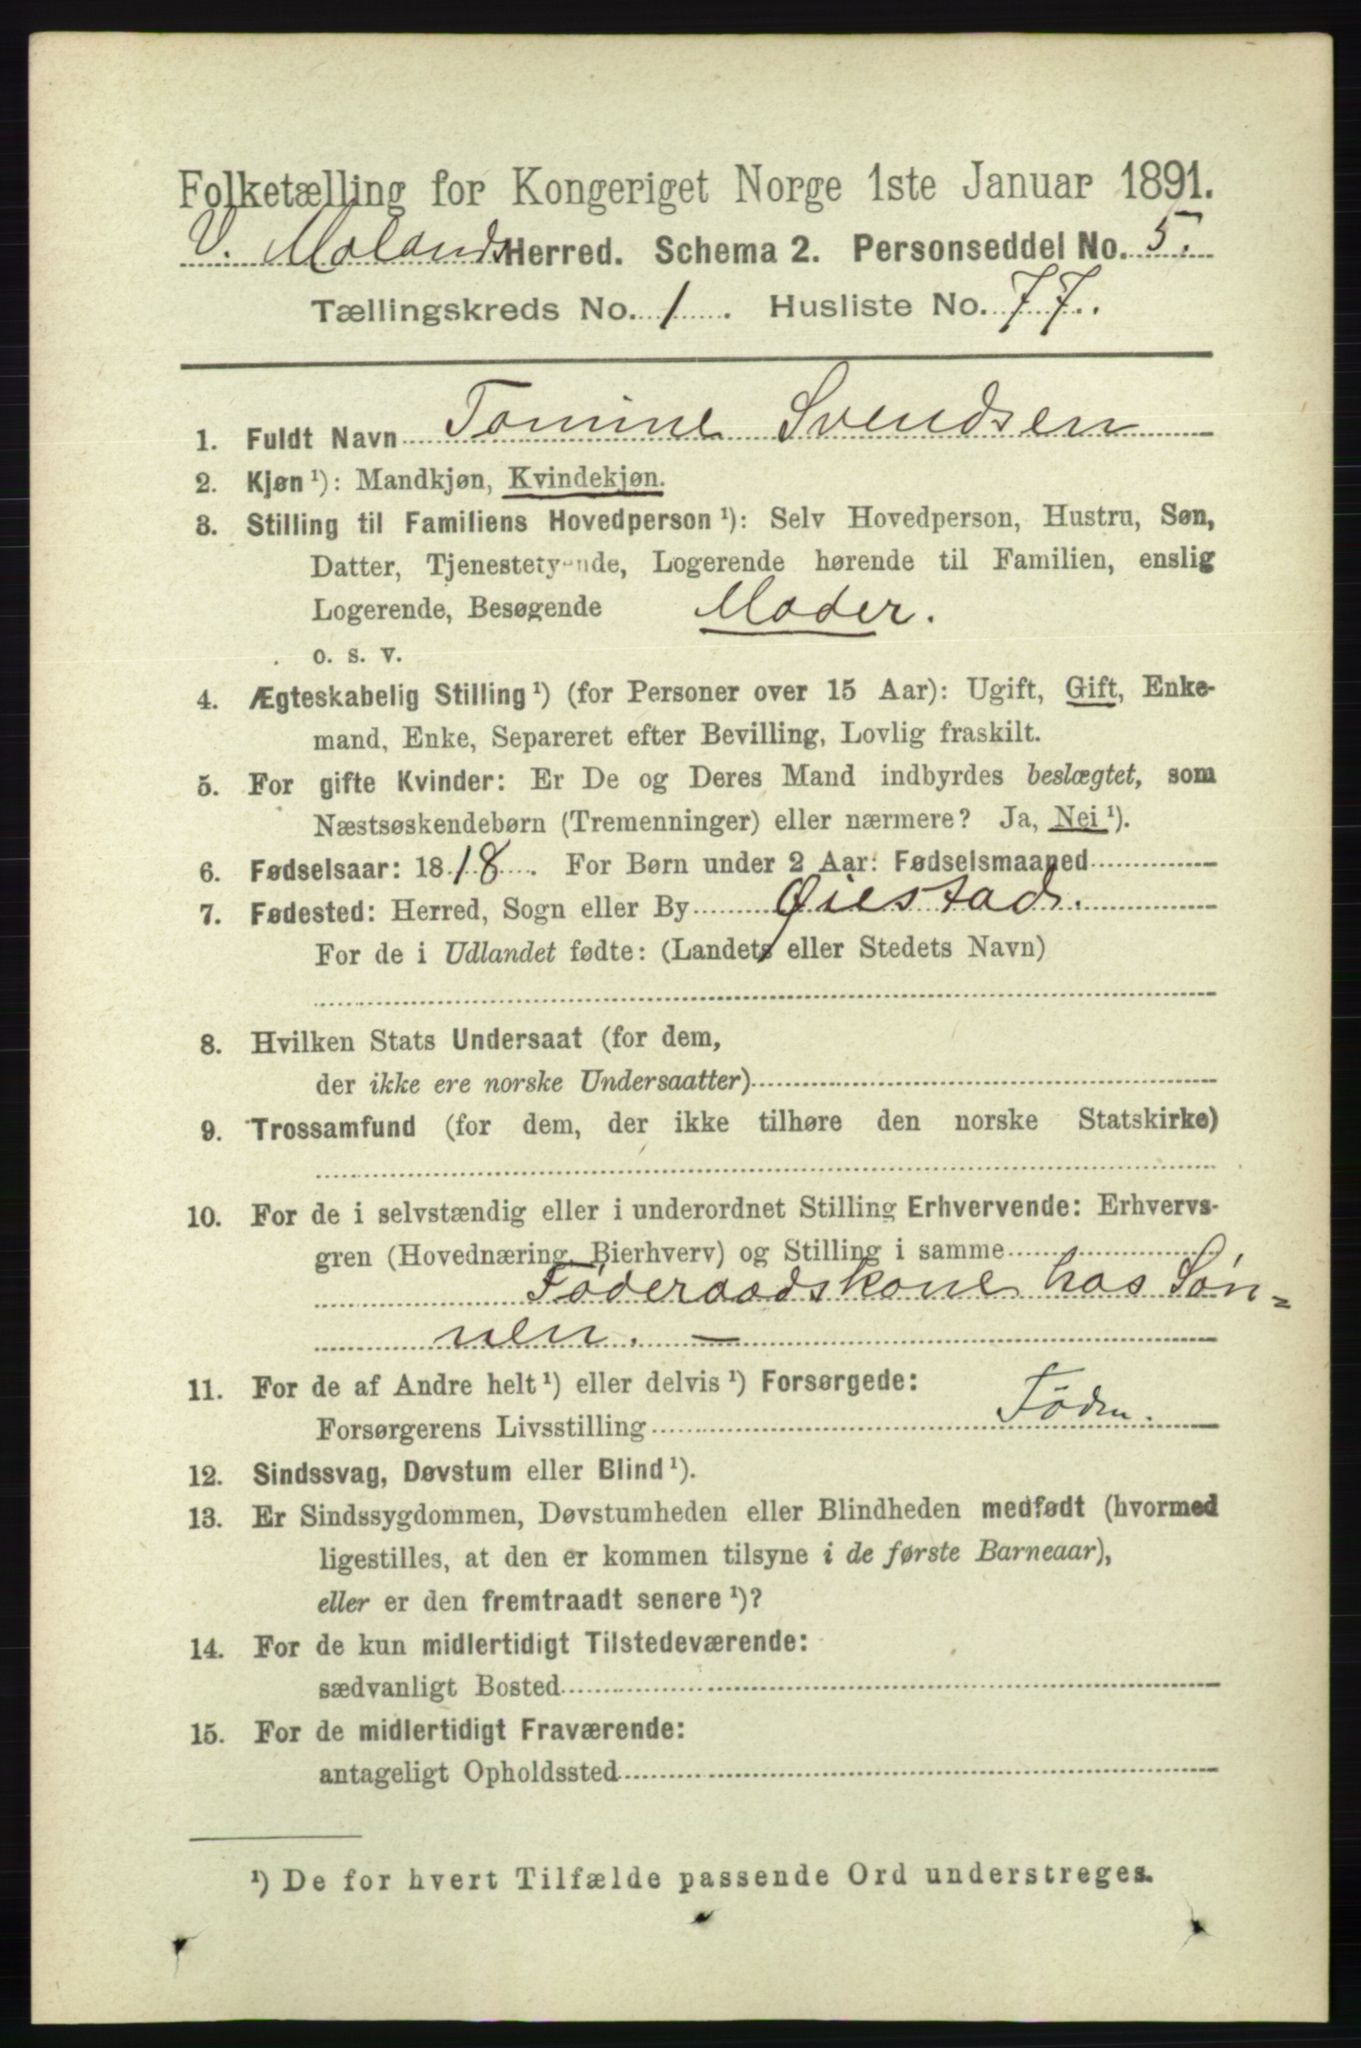 Folketælling for Kongeriget Norge 1ste Januar 1891.
V. Molands Herred. Schema 2. Personseddel No. 5.
Tællingskreds No. 1. Husliste No. 77.
1. Fuldt Navn Tomine Svendsen
2. Kjøn ¹): Mandkjøn, Kvindekjøn.
3. Stilling til Familiens Hovedperson ¹): Selv Hovedperson, Hustru, Søn,
Datter, Tjenestetyende, Logerende hørende til Familien, enslig
Logerende, Besøgende Moder.
o. s. v.
4. Ægteskabelig Stilling ¹) (for Personer over 15 Aar): Ugift, Gift, Enke-
mand, Enke, Separeret efter Bevilling, Lovlig fraskilt.
5. For gifte Kvinder: Er De og Deres Mand indbyrdes beslægtet, som
Næstsøskendebørn (Tremenninger) eller nærmere? Ja, Nei ¹).
6. Fødselsaar: 1818. For Børn under 2 Aar: Fødselsmaaned
7. Fødested: Herred, Sogn eller By Øiestad.
For de i Udlandet fødte: (Landets eller Stedets Navn)
8. Hvilken Stats Undersaat (for dem,
der ikke ere norske Undersaatter)
9. Trossamfund (for dem, der ikke tilhøre den norske Statskirke)
10. For de i selvstændig eller i underordnet Stilling Erhvervende: Erhvervs-
gren (Hovednæring, Bierhverv) og Stilling i samme
Føderaadskone hos Søn=
nen. —
11. For de af Andre helt ¹) eller delvis ¹) Forsørgede:
Forsørgerens Livsstilling Føden.
12. Sindssvag, Døvstum eller Blind ¹).
13. Er Sindssygdommen, Døvstumheden eller Blindheden medfødt (hvormed
ligestilles, at den er kommen tilsyne i de første Barneaar),
eller er den fremtraadt senere ¹)?
14. For de kun midlertidigt Tilstedeværende:
sædvanligt Bosted
15. For de midlertidigt Fraværende:
antageligt Opholdssted
¹) De for hvert Tilfælde passende Ord understreges.